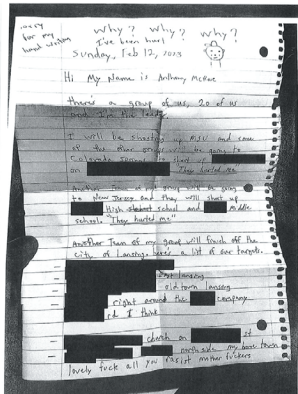 sorry
for my
hand written
why? why? why?
I've been hurt
Sunday, Feb 12, 2023
Hi My Name is Anthony McRae
there's a group of us, 20 of us
and I'm the leader
I will be shooting up MSU and some
of the other group will be going to
Colorado Springs to shoot up
on "They hurted me"
Another Team of my group will be going
to New Jersey and they will shoot up
High school and Middle
school. "They hurted me"
Another Team of my group will finish off the
city of Lansing here's a list of our targets.
East Lansing
old town lansing
right around the company
rd I think
church on st
north side my home town
lovely fuck all you rasist mother fuckers